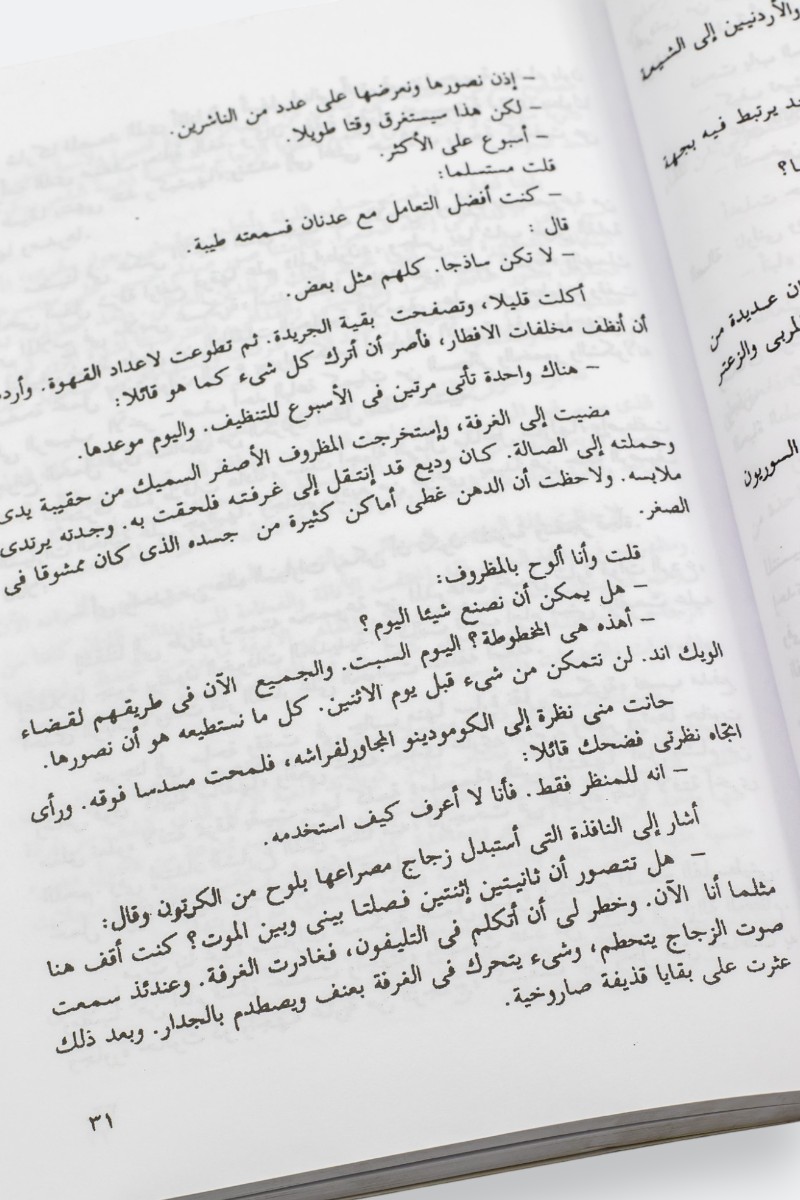 – إذن نصورها ونعرضها على عدد من الناشرين.
– لكن هذا سيستغرق وقتا طويلا.
– أسبوع على الأكثر.
قلت مستسلما:
– كنت أفضل التعامل مع عدنان فسمعته طيبة.
قال :
– لا تكن ساذجا. كلهم مثل بعض.
أكلت قليلا، وتصفحت بقية الجريدة. ثم تطوعت لاعداد القهوة.
أن أنظف مخلفات الافطار، فأصر أن أترك كل شىء كما هو قائلا:
– هناك واحدة تأتى مرتين فى الأسبوع للتنظيف. واليوم موعدها.
مضيت إلى الغرفة، وإستخرجت المظروف الأصفر السميك من حقيبة يدى
وحملته إلى الصالة. كان وديع قد إنتقل إلى غرفته فلحقت به. وجدته يرتدى
ملابسه. ولاحظت أن الدهن غطى أماكن كثيرة من جسده الذى كان ممشوقا فى
الصغر.
قلت وأنا ألوح بالمظروف:
– هل يمكن أن نصنع شيئا اليوم؟
– أهذه هى المخطوطة؟ اليوم السبت. والجميع الآن فى طريقهم لقضاء
الويك اند. لن نتمكن من شىء قبل يوم الاثنين. كل ما نستطيعه هو أن نصورها.
حانت منى نظرة إلى الكومودينو المجاورلفراشه، فلمحت مسدسا فوقه. ورأى
اتجاه نظرتى فضحك قائلا:
– انه للمنظر فقط. فأنا لا أعرف كيف استخدمه.
أشار إلى النافذة التى أستبدل زجاج مصراعها بلوح من الكرتون وقال:
– هل تتصور أن ثانيتين إثنتين فصلتا بينى وبين الموت؟ كنت أقف هنا
مثلما أنا الآن. وخطر لى أن أتكلم فى التليفون، فغادرت الغرفة. وعندئذ سمعت
صوت الزجاج يتحطم، وشىء يتحرك فى الغرفة بعنف ويصطدم بالجدار. وبعد ذلك
عثرت على بقايا قذيفة صاروخية.
٣١
والأردنيين إلى الشيعة
يرتبط فيه بجهة
عديدة من
والزعتر
السوريون